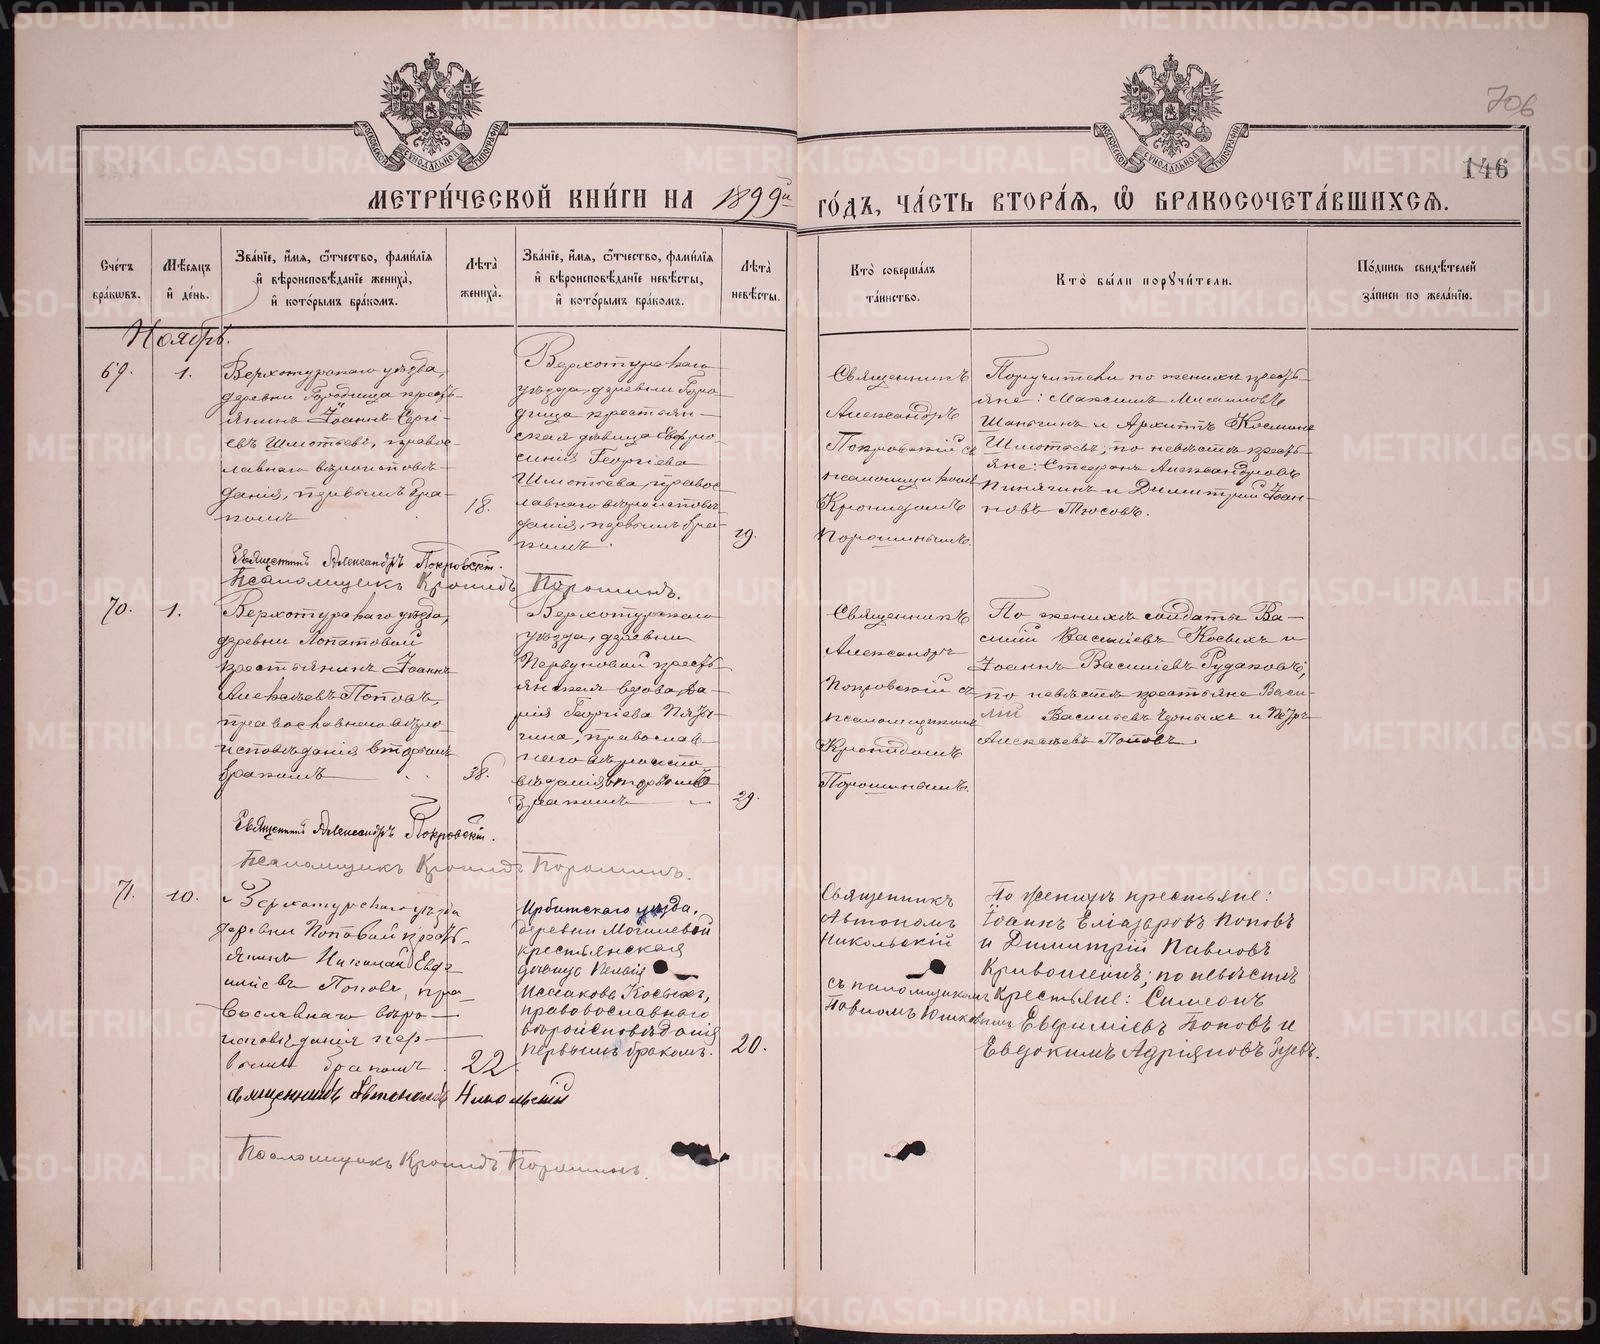 706
146
МЕТРИ́ЧЕСКОЙ КНИ́ГИ НА 1899й ГО́ДЪ, ЧА́СТЬ ВТОРА́Я, Ѡ҆ БРАКОСОЧЕТА́ВШИХСЯ.
Сче́тъ бра́ковъ.
Мѣ́сяцъ и҆ де́нь.
Зва́нїе, и҆́мя, ѻ҆́тчество, фами́лїя
и҆ вѣроисповѣ́данїе жениха̀,
и҆ кото́рымъ бра́комъ.
Лѣ́та жениха̀.
Зва́нїе, и҆́мя, ѻ҆́тчество, фами́лїя
и҆ вѣроисповѣ́данїе невѣ́сты,
и҆ кото́рымъ бра́комъ.
Лѣ́та невѣ́сты.
Кто̀ соверша́лъ
та́инство.
Кто̀ бы́ли порꙋчи́тели.
По́дпись свидѣ́телей
за́писи по жела́нїю.
Ноябрь.
69.
1.
Верхотурскаго уѣзда,
деревни Городища кресть-
янинъ Іоаннъ Сергі-
евъ Шмотьевъ, правос-
лавнаго вѣроисповѣ-
данія, первымъ бра-
комъ
18.
Верхотурскаго
уѣзда, деревни Горо-
дища крестьян-
ская дѣвица Евфро-
синія Георгіева
Шмотьева, правос-
лавнаго вѣроисповѣ-
данія, первымъ бра-
комъ.
19.
Священникъ
Александръ
Покровскій съ
псаломщикомъ
Кронидомъ
Порошинымъ.
Поручители по женихѣ кресть-
яне: Максимъ
Шаньгинъ и Архипъ Косминъ
Шмотьевъ; по невѣстѣ кресть-
яне: Стефанъ Александровъ
Пинягинъ и Димитрій Іоан-
новъ Тюсовъ.
Священникъ Александръ Покровскій.
Псаломщикъ Кронидъ Порошинъ.
70.
1.
Верхотурскаго уѣзда,
деревни Лопатовой
крестьянинъ Іоаннъ
Алексѣевъ Поповъ,
православнаго вѣро-
исповѣданія вторымъ
бракомъ
38.
Верхотурскаго
уѣзда, деревни
Первуновой кресть-
янская вдова Да-
рія Георгіева
православ-
наго вѣроиспо-
вѣданія, вторымъ
бракомъ
29.
Священникъ
Александръ
Покровскій съ
псаломщикомъ
Кронидомъ
Порошинымъ.
По женихѣ солдаты Ва-
силій Васильевъ Косыхъ и
Іоаннъ Василіевъ Рудаковъ;
по невѣстѣ крестьяне Васи-
лій Васильевъ Черныхъ и Петръ
Алексѣевъ Поповъ.
Священникъ Александръ Покровскій.
Псаломщикъ Кронидъ Порошинъ.
71.
10.
Верхотурскаго уѣзда
деревни Поповой кресть-
янинъ Николай
Поповъ, пра-
вославнаго вѣро-
исповѣданія пер-
вымъ бракомъ
22
Ирбитскаго уѣзда,
деревни Могилевой
крестьянская
дѣвица
Исаакова Косыхъ,
православнаго
вѣроисповѣданія
первымъ бракомъ.
20.
Священникъ
Автономъ
Никольскій
съ псаломщикомъ
Павломъ
По женихѣ крестьяне:
Іоаннъ Еліазаровъ Поповъ
и Димитрій Павловъ
Кривошеинъ; по невѣстѣ
крестьяне: Симеонъ
Евфиміевъ Поповъ и
Евдокимъ Адріановъ Зуевъ.
Священникъ Автономъ Никольскій
Псаломщикъ Кронидъ Порошинъ.